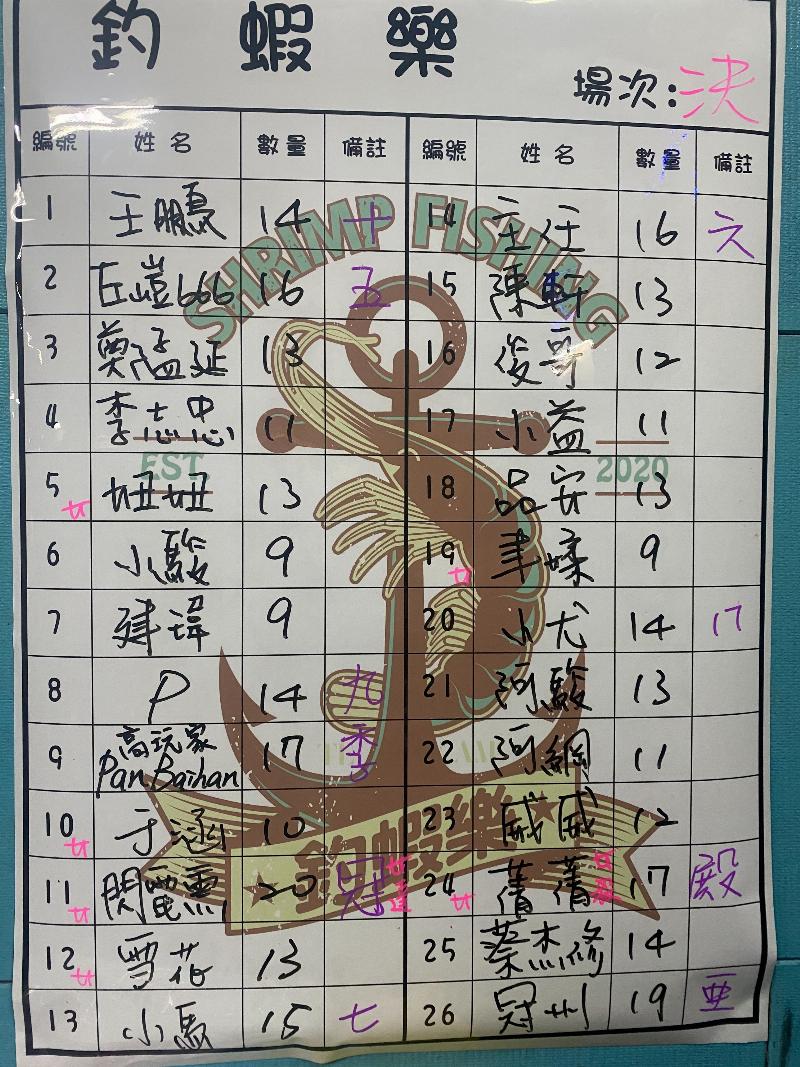 釣蝦樂
場次:決
編號 姓名 數量 備註 編號 姓名 數量 備註
1 王鵬 14 十 14 主任 16 六
2 在嵦666 16 五 15 陳 13
3 鄭 延 13 16 俊哥 12
4 李志忠 11 17 小益 11
5 女 妞妞 13 18 品安 13
6 小駿 9 19 女 9
7 建瑋 9 20 小尤 14 17
8 P 14 九 21 阿駿 13
9 高玩家 Pan Baihan 17 季 22 阿綱 11
10 女 于涵 10 23 威威 12
11 女 閃電 20 冠 女 24 女 蒨蒨 女 17 殿
12 女 雪花 13 25 蔡杰修 14
13 小馬 15 七 26 冠州 19 亜
SHRIMP FISHING
EST 2020
釣蝦樂